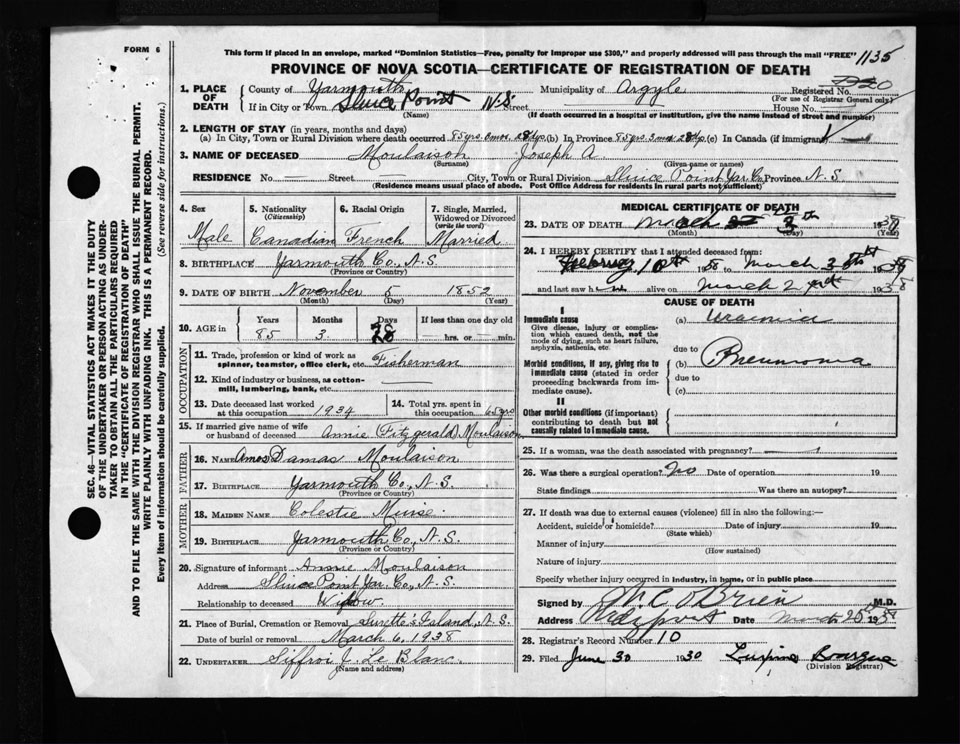 FORM 6
This form if placed in an envelope, marked "Dominion Statistics—Free, penalty for improper use $300," and properly addressed will pass through the mail "FREE" 1135
PROVINCE OF NOVA SCOTIA—CERTIFICATE OF REGISTRATION OF DEATH
1. PLACE OF DEATH
County of Yarmouth Municipality of Argyle Registered No.
(For use of Registrar General only)
If in City or Town Sluice Point N.S. Street House No.
(Name) (If death occurred in a hospital or institution, give the name instead of street and number)
2. LENGTH OF STAY (in years, months and days)
(a) In City, Town or Rural Division where death occurred 85 yrs. 3 mos. 28 dys. (b) In Province 85 yrs. 3 mos. 28 dys. (c) In Canada (if immigrant)
3. NAME OF DECEASED Moulaison Joseph A.
(Surname) (Given name or names)
RESIDENCE No. — Street — City, Town or Rural Division Sluice Point Yar. Co. Province N.S.
(Residence means usual place of abode. Post Office Address for residents in rural parts not sufficient)
4. Sex Male
5. Nationality (Citizenship) Canadian
6. Racial Origin French
7. Single, Married, Widowed or Divorced (write the word) Married
8. BIRTHPLACE Yarmouth Co., N.S.
(Province or Country)
9. DATE OF BIRTH November 5 1852
(Month) (Day) (Year)
10. AGE in Years 85 Months 3 Days 28 If less than one day old hrs. or min.
OCCUPATION
11. Trade, profession or kind of work as spinner, teamster, office clerk, etc. Fisherman
12. Kind of industry or business, as cotton-mill, lumbering, bank, etc. —
13. Date deceased last worked at this occupation 1934
14. Total yrs. spent in this occupation 65 yrs
15. If married give name of wife or husband of deceased Annie (Fitzgerald) Moulaison
FATHER
16. NAME Amos Damas Moulaison
17. BIRTHPLACE Yarmouth Co., N.S.
(Province or Country)
MOTHER
18. MAIDEN NAME Colestie Muise
19. BIRTHPLACE Yarmouth Co., N.S.
(Province or Country)
20. Signature of informant Annie Moulaison
Address Sluice Point Yar. Co., N.S.
Relationship to deceased Widow.
21. Place of Burial, Cremation or Removal Surette's Island, N.S.
Date of burial or removal March 6, 1938
22. UNDERTAKER Siffroi J. Le Blanc.
(Name and address)
MEDICAL CERTIFICATE OF DEATH
23. DATE OF DEATH March 1938
(Month) (Day) (Year)
24. I HEREBY CERTIFY that I attended deceased from:
February 10th 1938 to March
and last saw h alive on March 2 1938
CAUSE OF DEATH
I
Immediate cause
Give disease, injury or complication which caused death, not the mode of dying, such as heart failure, asphyxia, asthenia, etc.
(a) Uraemia
due to
Morbid conditions, if any, giving rise to immediate cause (stated in order proceeding backwards from immediate cause).
(b) Pneumonia
due to
(c)
II
Other morbid conditions (if important) contributing to death but not causally related to immediate cause.
25. If a woman, was the death associated with pregnancy?
26. Was there a surgical operation? No Date of operation 19
State findings Was there an autopsy?
27. If death was due to external causes (violence) fill in also the following:—
Accident, suicide or homicide? Date of injury 19
(State which)
Manner of injury
(How sustained)
Nature of injury
Specify whether injury occurred in industry, in home, or in public place
Signed by O'Brien M.D.
Address Date March 25
28. Registrar's Record Number 10
29. Filed June 30 1930 Bourque
(Division Registrar)
SEC. 46—VITAL STATISTICS ACT MAKES IT THE DUTY
OF THE UNDERTAKER OR PERSON ACTING AS UNDER-
TAKER TO OBTAIN ALL THE PARTICULARS REQUIRED
IN THE "CERTIFICATE OF REGISTRATION OF DEATH"
AND TO FILE THE SAME WITH THE DIVISION REGISTRAR WHO SHALL ISSUE THE BURIAL PERMIT.
WRITE PLAINLY WITH UNFADING INK. THIS IS A PERMANENT RECORD.
Every item of information should be carefully supplied. (See reverse side for instructions.)